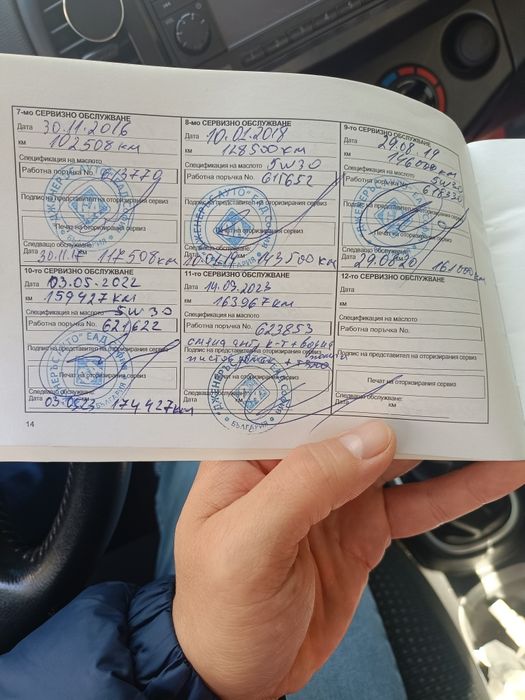 7-мо СЕРВИЗНО ОБСЛУЖВАНЕ
Дата 30.11.2016
км 102508 км
Спецификация на маслото
Работна поръчка No. 613779
Подпис на представител на оторизирания сервиз
Печат на оторизирания сервиз
Следващо обслужване:
Дата 30.11.17 117508 км
8-мо СЕРВИЗНО ОБСЛУЖВАНЕ
Дата 10.01.2018
км 128500 км
Спецификация на маслото 5W30
Работна поръчка No. 615652
Подпис на представител на оторизирания сервиз
Печат на оторизирания сервиз
Следващо обслужване:
Дата 10.01.19 143500 км
9-то СЕРВИЗНО ОБСЛУЖВАНЕ
Дата 29.08.19
км 146000 км
Спецификация на маслото 5W30
Работна поръчка No.
Подпис на представител на оторизирания сервиз
Печат на оторизирания сервиз
Следващо обслужване:
Дата 29.08.20 161000 км
10-то СЕРВИЗНО ОБСЛУЖВАНЕ
Дата 03.05.2022
км 159427 км
Спецификация на маслото 5W30
Работна поръчка No. 621622
Подпис на представител на оторизирания сервиз
Печат на оторизирания сервиз
Следващо обслужване:
Дата 03.05.23 174427 км
11-то СЕРВИЗНО ОБСЛУЖВАНЕ
Дата 14.07.2023
км 163967 км
Спецификация на маслото
Работна поръчка No. 623853
смяна анг. к-т + водна
Подпис на представител на оторизирания сервиз
Печат на оторизирания сервиз
Следващо обслужване:
Дата
ДЖЕНЕРЪС АУТО ЕАД СОФИЯ
БЪЛГАРИЯ
12-то СЕРВИЗНО ОБСЛУЖВАНЕ
Дата
км
Спецификация на маслото
Работна поръчка No.
Подпис на представител на оторизирания сервиз
Печат на оторизирания сервиз
Следващо обслужване:
Дата км
14